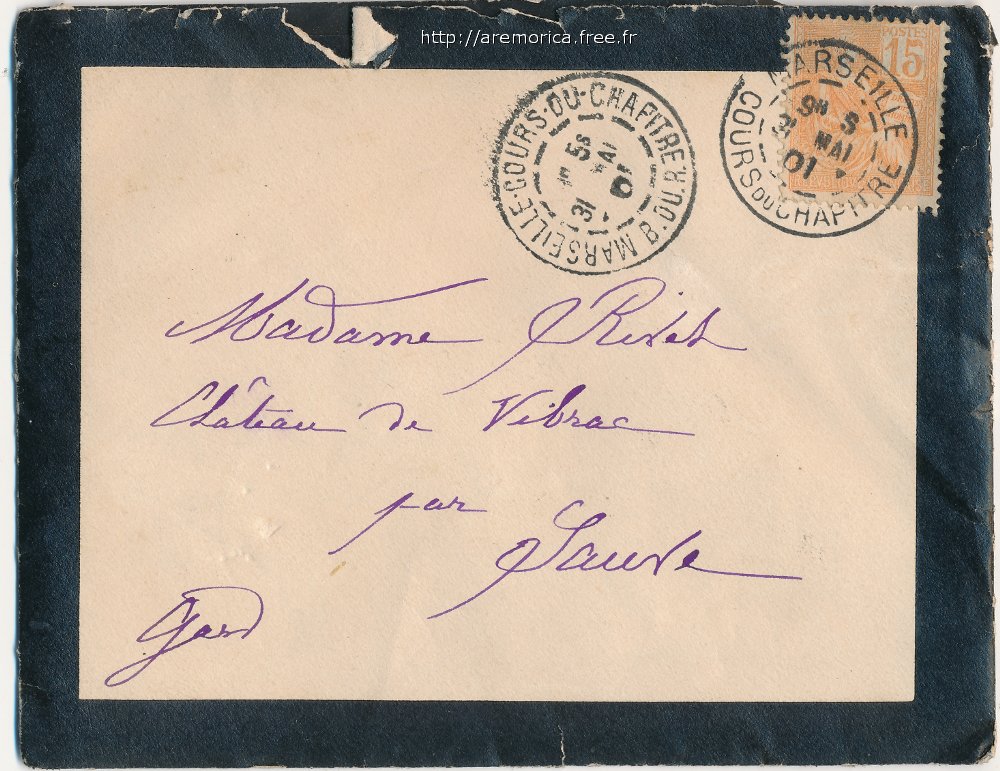 http://aremorica.free.fr
POSTES
15
MARSEILLE
COURS DU CHAPITRE
5
MAI
01
MARSEILLE-COURS-DU-CHAPITRE
B. DU R.
5S
31
MAI
01
Madame Rivet
Château de Vibrac
par Sauve
Gard